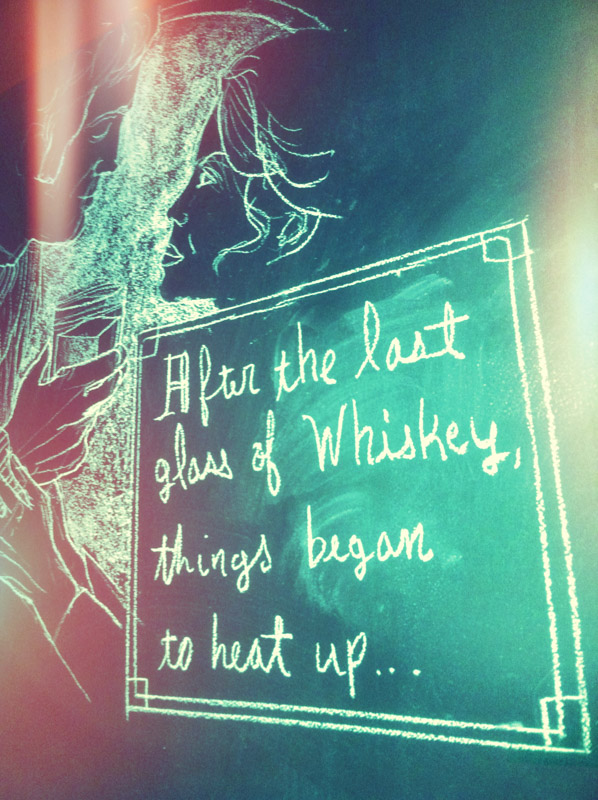 After the last
glass of Whiskey,
things began
to heat up...